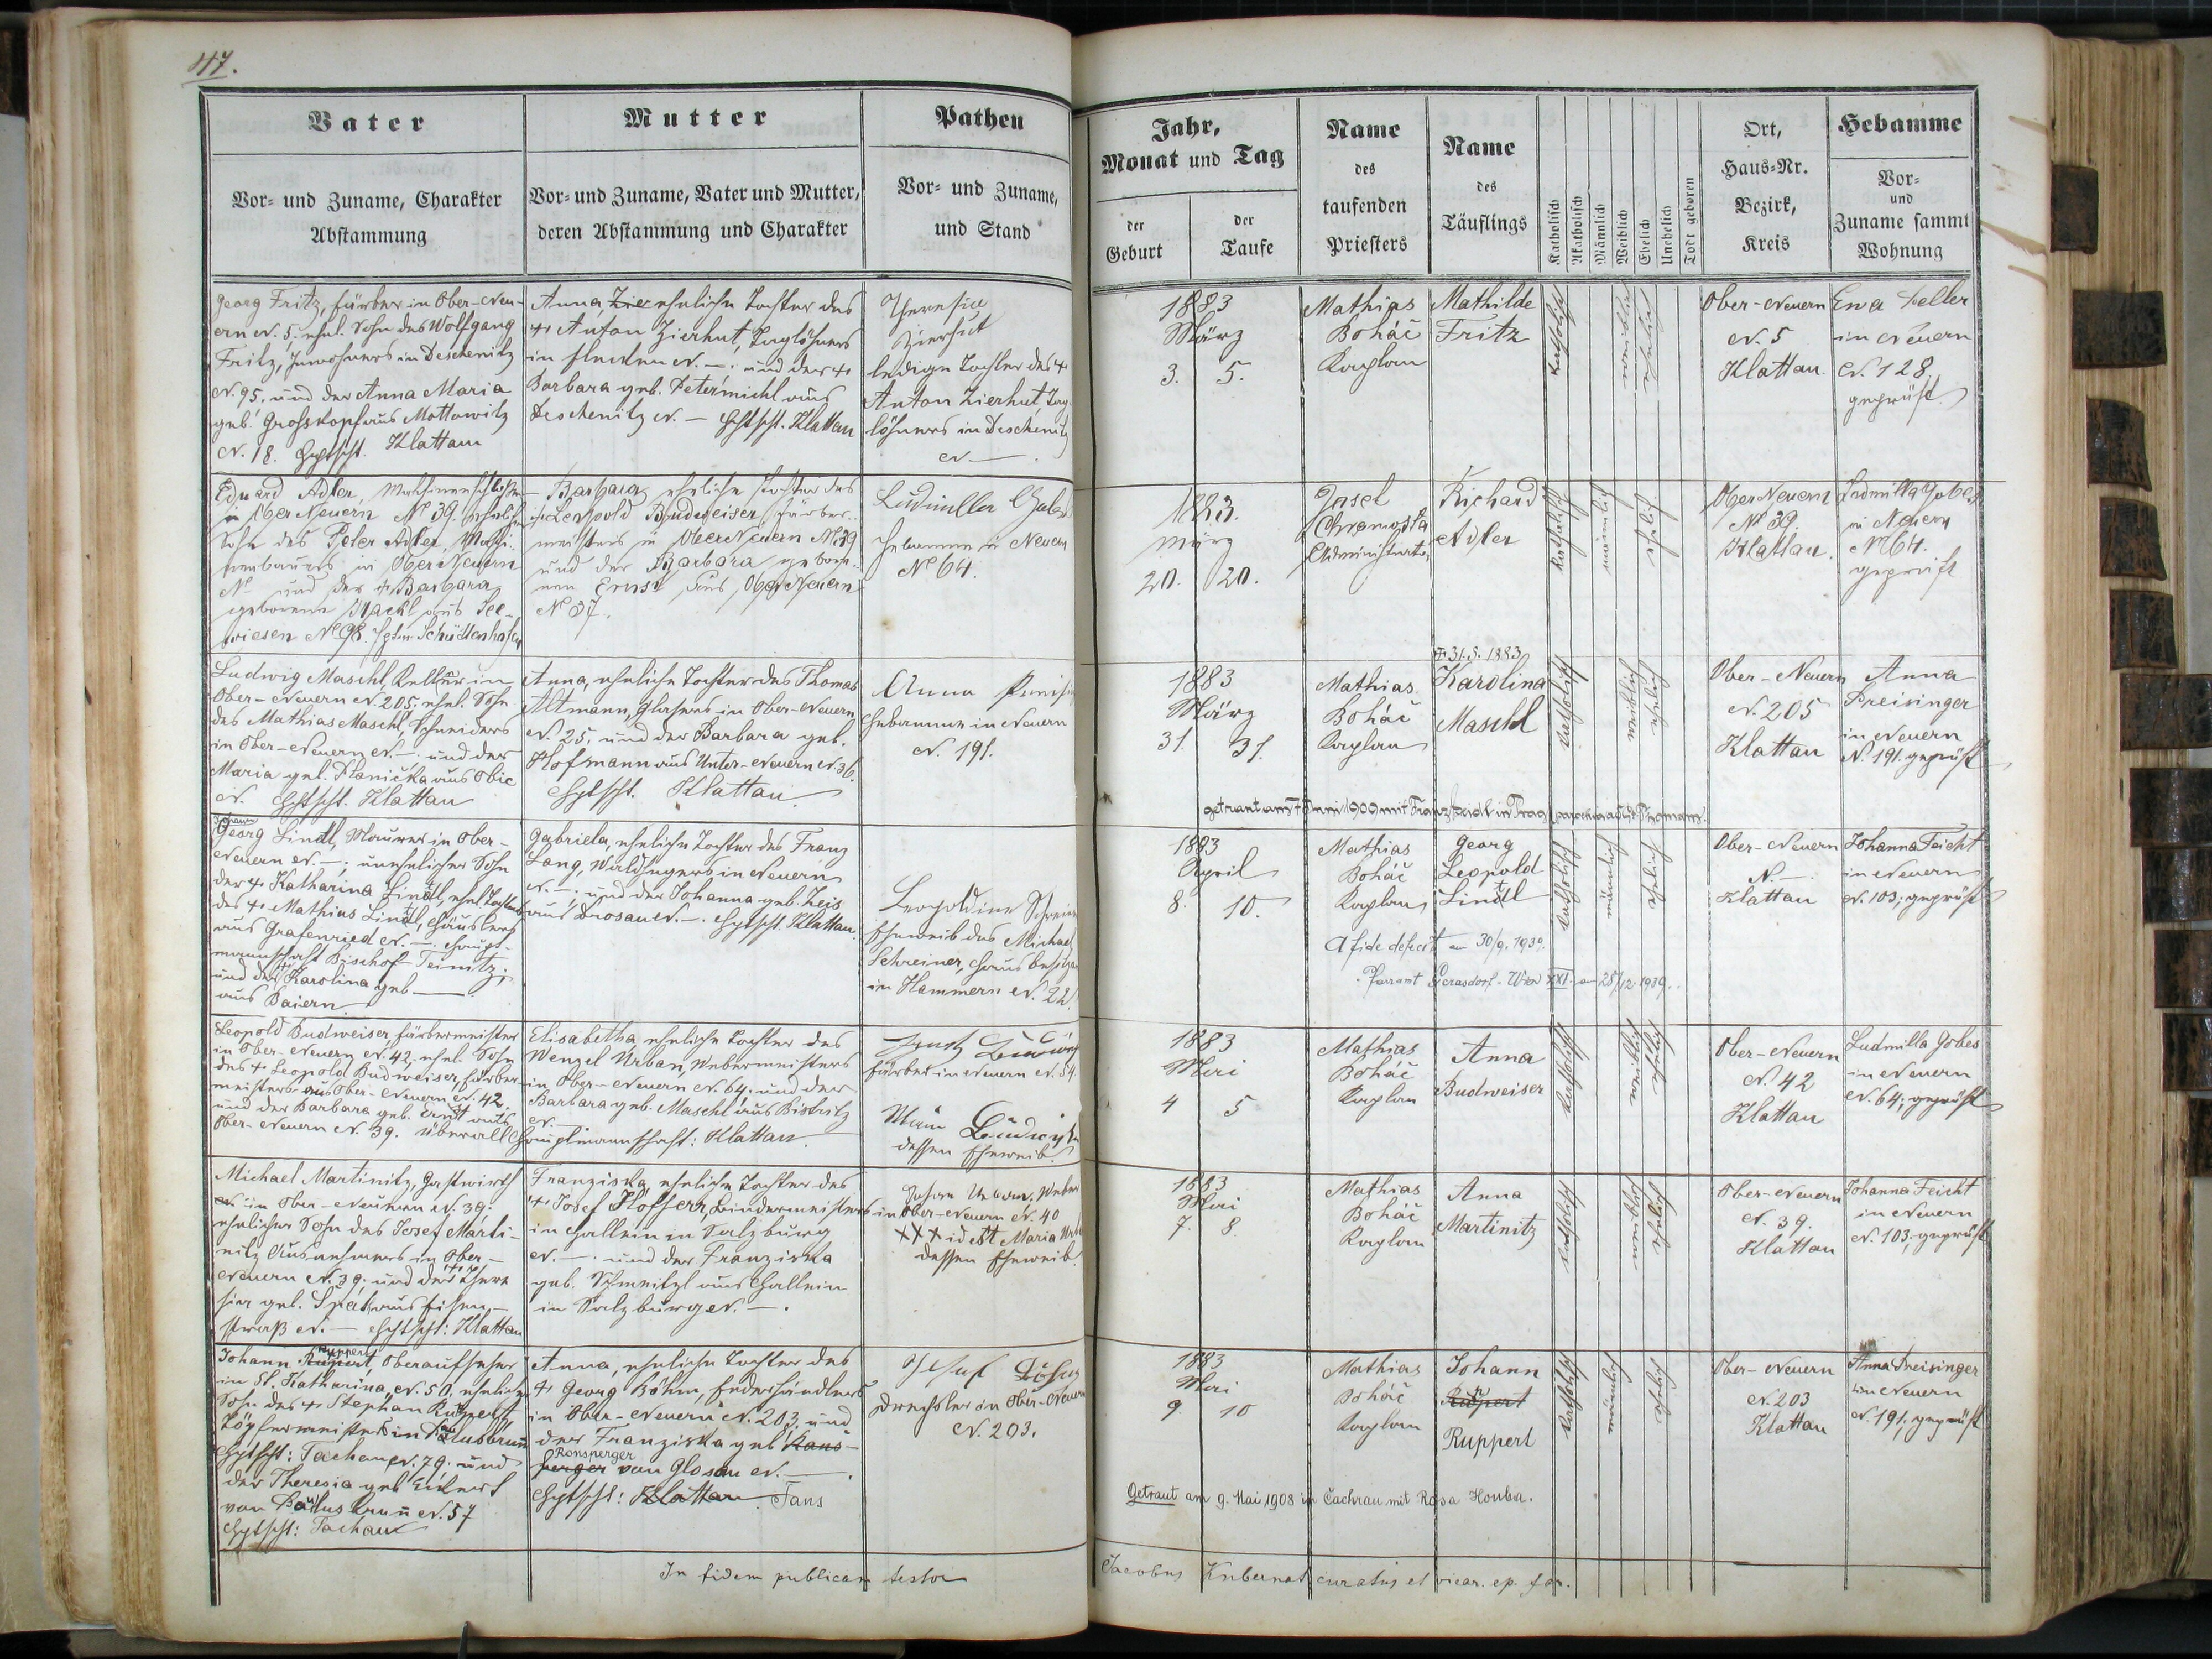 47.
Vater
Vor- und Zuname, Charakter
Abstammung
Mutter
Vor- und Zuname, Vater und Mutter,
deren Abstammung und Charakter
Pathen
Vor- und Zuname,
und Stand
Jahr,
Monat und Tag
der
Geburt
der
Taufe
Name
des
taufenden
Priesters
Name
des
Täuflings
Katholisch
Akatholisch
Männlich
Weiblich
Ehelich
Unehelich
Todt geboren
Ort,
Haus-Nr.
Bezirk,
Kreis
Hebamme
Vor-
und
Zuname sammt
Wohnung
Georg Fritz, Färber in Ober-Neu-
ern N. 5. ehel. Sohn des Wolfgang
Fritz, Inwohners in Deschenitz
N. 95. und der Anna Maria
geb. Grosskopf aus Mottowitz
N. 18. Hptscht. Klattau
Anna, eheliche Tochter des
† Anton Zierhut, Taglöhners
in N. —. und der †
Barbara geb. Petermichl aus
Deschenitz N. — Hptscht. Klattau
Theresia
Zierhut
ledige Tochter des †
Anton Zierhut, Tag-
löhners in Deschenitz
N. —.
1883
März
3. 5.
Mathias
Boháč
Kaplan
Mathilde
Fritz
katholisch
weiblich
ehelich
Ober-Neuern
N. 5
Klattau.
Eva
in Neuern
N. 128.
geprüft
Eduard Adler, Maschinenschlosser
in Ober Neuern N° 39. ehelicher
Sohn des Peter Adler,
in Ober Neuern
N° und der † Barbara
geborene Hackl aus See-
wiesen N° 98. Schüttenhofen
Barbara eheliche Tochter des
† Leopold Budweiser Färber-
meisters in Ober Neuern N° 39
und der Barbara gebore-
nen Ernst aus Ober Neuern
N° 37.
Ludmilla
Hebamme in Neuern
N° 64.
1883.
März
20. 20.
Josef
Chramosta
Administrator
Richard
Adler
katholisch
männlich
ehelich
Ober Neuern
N° 39.
Klattau.
Ludmilla Gobes
in Neuern
N° 64.
geprüft
Ludwig Maschl, Kellner in
Ober-Neuern N. 205. ehel. Sohn
des Mathias Maschl, Schneiders
in Ober-Neuern N. — und der
Maria geb. Planička aus Obic
N. Hptscht. Klattau
Anna, eheliche Tochter des Thomas
Altmann, Glasers in Ober-Neuern
N. 25, und der Barbara geb.
Hofmann aus Unter-Neuern N. 36.
Hptscht. Klattau.
Anna
Hebamme in Neuern
N. 191.
† 31.5. 1883
1883
März
31. 31.
Mathias
Boháč
Kaplan
Karolina
Maschl
katholisch
weiblich
ehelich
Ober-Neuern
N. 205
Klattau
Anna
Preisinger
in Neuern
N. 191. geprüft
getraut am 7 Juni 1909 mit Franz in Prag
Johann
Georg Lindl, Maurer in Ober-
Neuern N. —; unehelicher Sohn
der † Katharina Lindl, ehel. Tochter
des † Mathias Lindl, Häuslers
aus Grafenried N. —. Haupt-
mannschaft Bischof-Teinitz;
und der Karolina geb. —
aus Baiern
Gabriela, eheliche Tochter des Franz
Lang, Waldhegers in Neuern
N. —; und der Johanna geb. Zeis
aus Drosau N. —. Hptscht. Klattau.
Leopoldine Schreiner
Eheweib des Michael
Schreiner, Hausbesitzer
in Hammern N. 22
1883
April
8. 10.
Mathias
Boháč
Kaplan
Georg
Leopold
Lindl
katholisch
männlich
ehelich
Ober-Neuern
N. —.
Klattau
Johanna Feicht
in Neuern
N. 103; geprüft
A fide defecit am 30/9. 1939.
Pfarramt Gerasdorf - Wien XXI. am 28/12 1939.
Leopold Budweiser, Färbermeister
in Ober-Neuern N. 42, ehel. Sohn
des † Leopold Budweiser, Färber-
meisters aus Ober-Neuern N. 42.
und der Barbara geb. Ernst aus
Ober-Neuern N. 39. überall
Elisabetha, eheliche Tochter des
Wenzel Urban, Webermeisters
in Ober-Neuern N. 64; und der
Barbara geb. Maschl aus Bistritz
N. —
Hauptmannschaft: Klattau
Färber in Neuern N. 54
dessen Eheweib.
1883
Mai
4 5
Mathias
Boháč
Kaplan
Anna
Budweiser
katholisch
weiblich
ehelich
Ober-Neuern
N. 42
Klattau
Ludmilla Gobes
in Neuern
N. 64; geprüft
Michael Martinitz, Gastwirth
in Ober-Neuern N. 39.
ehelicher Sohn des Josef Marti-
nitz Ausnehmers in Ober-
Neuern N. 39. und der † There-
sia geb. Spät aus Eisen-
straß N. — Hptscht: Klattau
Franziska, eheliche Tochter des
† Josef Höfferer, Bindermeisters
in Hallein in Salzburg
N. —. und der Franziska
geb. Schmeitzl aus Hallein
in Salzburg N. —.
Johann Urban, Weber
in Ober-Neuern N. 40
XXX id est Maria
dessen Eheweib.
1883
Mai
7. 8.
Mathias
Boháč
Kaplan
Anna
Martinitz
katholisch
weiblich
ehelich
Ober-Neuern
N. 39.
Klattau
Johanna Feicht
in Neuern
N. 103; geprüft
Johann Ruppert, Oberaufseher
in St. Katharina, N. 50, ehelicher
Sohn des † Stephan Ruppert
Töpfermeisters in Paulusbrunn
Hptscht: Tachau N. 79. und
der Theresia geb. Eckert
von Paulusbrunn N. 57
Hptscht: Tachau
Anna, eheliche Tochter des
† Georg Böhm, Federhändlers
in Ober-Neuern N. 203, und
der Franziska geb. Rans-
berger Ronsperger von Glosau N. —.
Hptscht: Klattau. Taus
Josef
Drechsler in Ober-Neuern
N. 203.
1883
Mai
9. 10
Mathias
Boháč
Kaplan
Johann
Rupert
Ruppert
katholisch
männlich
ehelich
Ober-Neuern
N. 203
Klattau
Anna Preisinger
in Neuern
N. 191, geprüft
Getraut am 9. Mai 1908 in Čachrau mit Rosa Houba.
In fidem publicam testor Jacobus Kubernat curatus et vicar. ep. for.